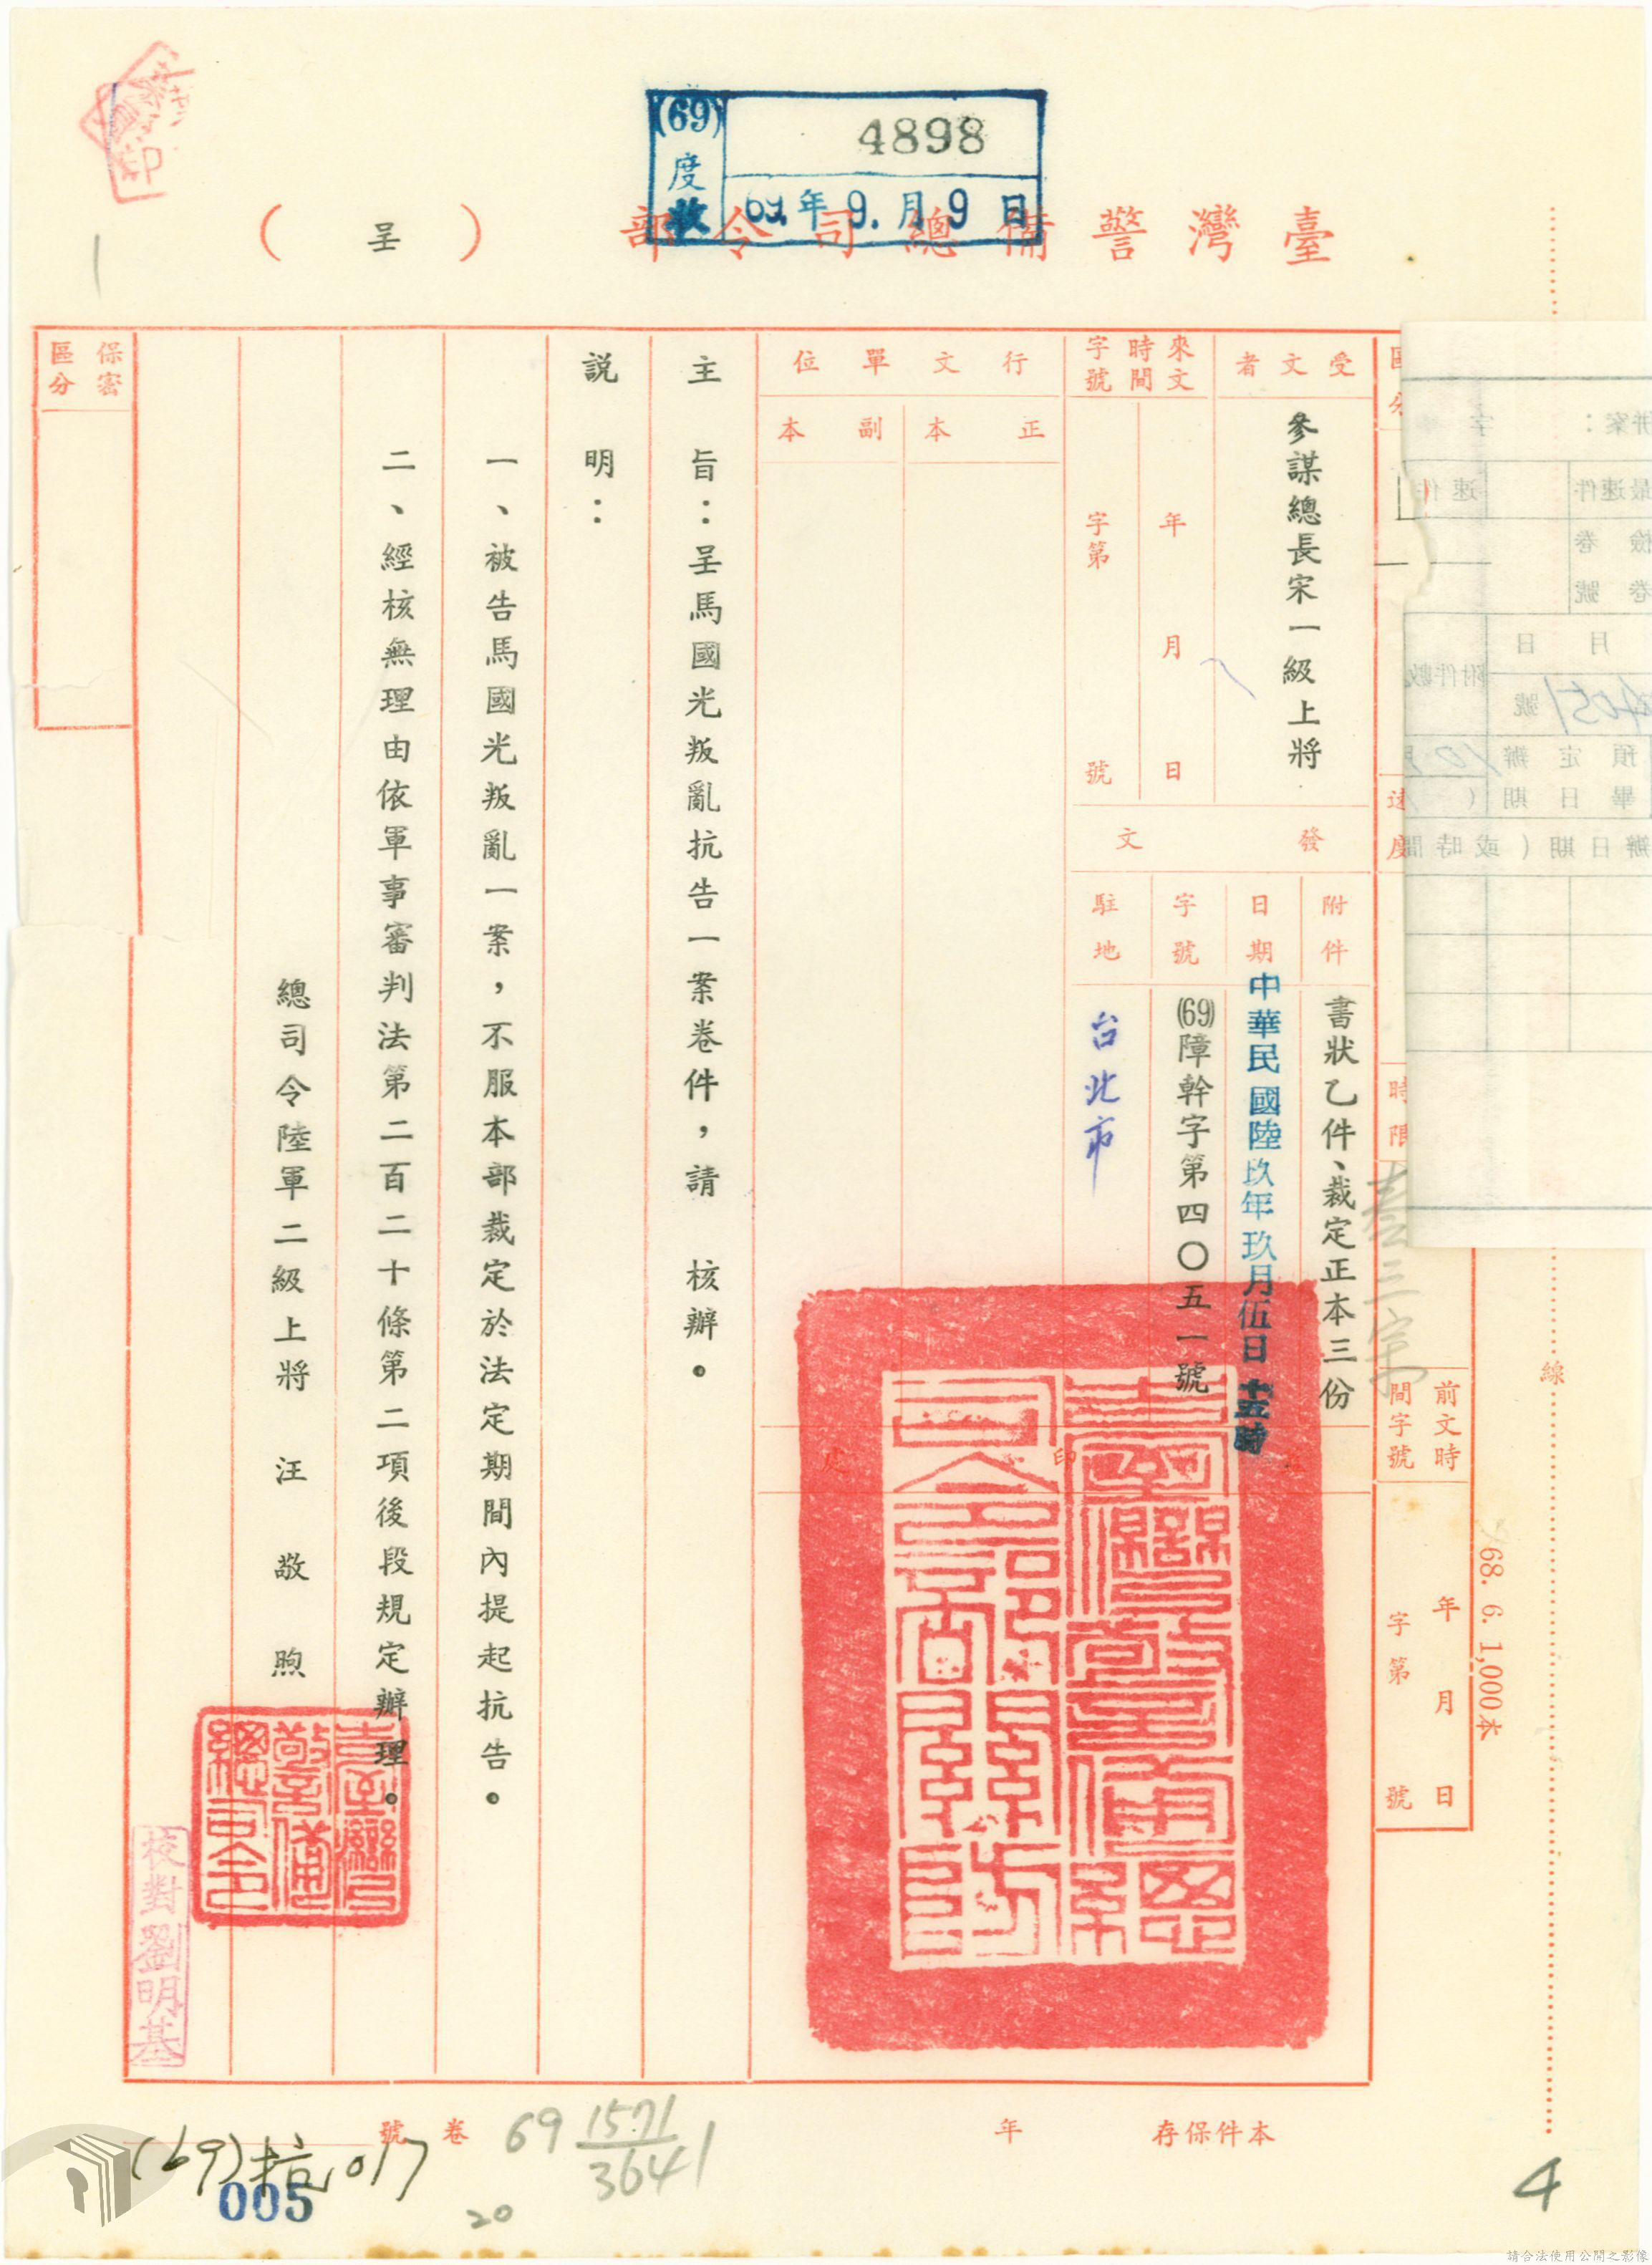 (69)
度
收
4898
69年9.月9日
臺灣警備總司令部
(呈)
受文者
參謀總長宋一級上將
來文
時間
年 月 日
字號
字第 號
行文單位
正本
副本
發文
附件
書狀乙件、裁定正本三份
日期
中華民國陸玖年玖月伍日
字號
(69)障幹字第四〇五一號
駐地
台北市
主旨：呈馬國光叛亂抗告一案卷件，請 核辦。
説明：
一、被告馬國光叛亂一案，不服本部裁定於法定期間內提起抗告。
二、經核無理由依軍事審判法第二百二十條第二項後段規定辦理。
總司令陸軍二級上將 汪敬煦
臺灣警備總司令
校對劉明基
保密
區分
速度
時限
前文時
間字號
年 月 日
字第 號
68. 6. 1,000本
線
印
併案：
字
最速件
速件
檢卷
卷號
月 日
附件數
4051
號
預定辦
畢日期(
辦日期(或時間
本件保存 年
卷號
69 1571
3641
20
(69)抗017
005
4
請合法使用公開之影像